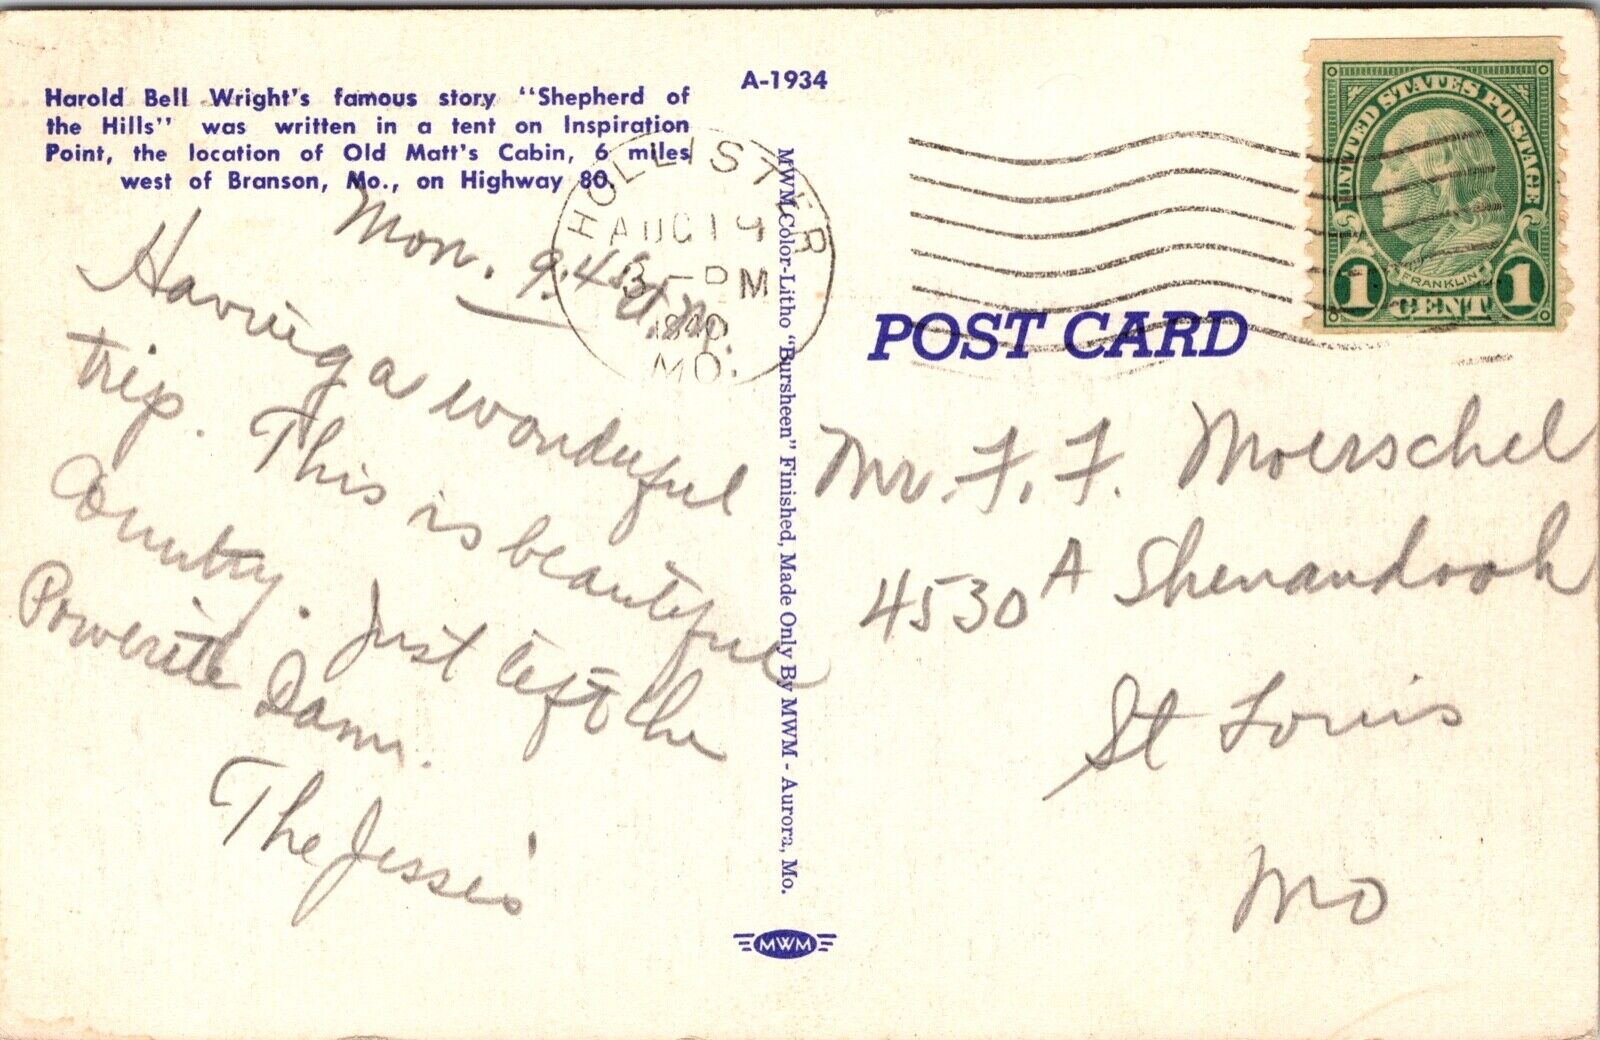 Harold Bell Wright's famous story "Shepherd of
the Hills" was written in a tent on Inspiration
Point, the location of Old Matt's Cabin, 6 miles
west of Branson, Mo., on Highway 80.
A-1934
HOLLISTER
AUG 19
PM
1940
MO.
UNITED STATES POSTAGE
FRANKLIN
1 CENT 1
POST CARD
Mon. 9:45
Having a wonderful
trip. This is beautiful
Country. Just left the
Powersite Dam.
The Jesse's
MWM Color-Litho "Bursheen" Finished, Made Only By MWM - Aurora, Mo.
MWM
Mr. F. F. Moerschel
4530A Shenandoah
St Louis
Mo